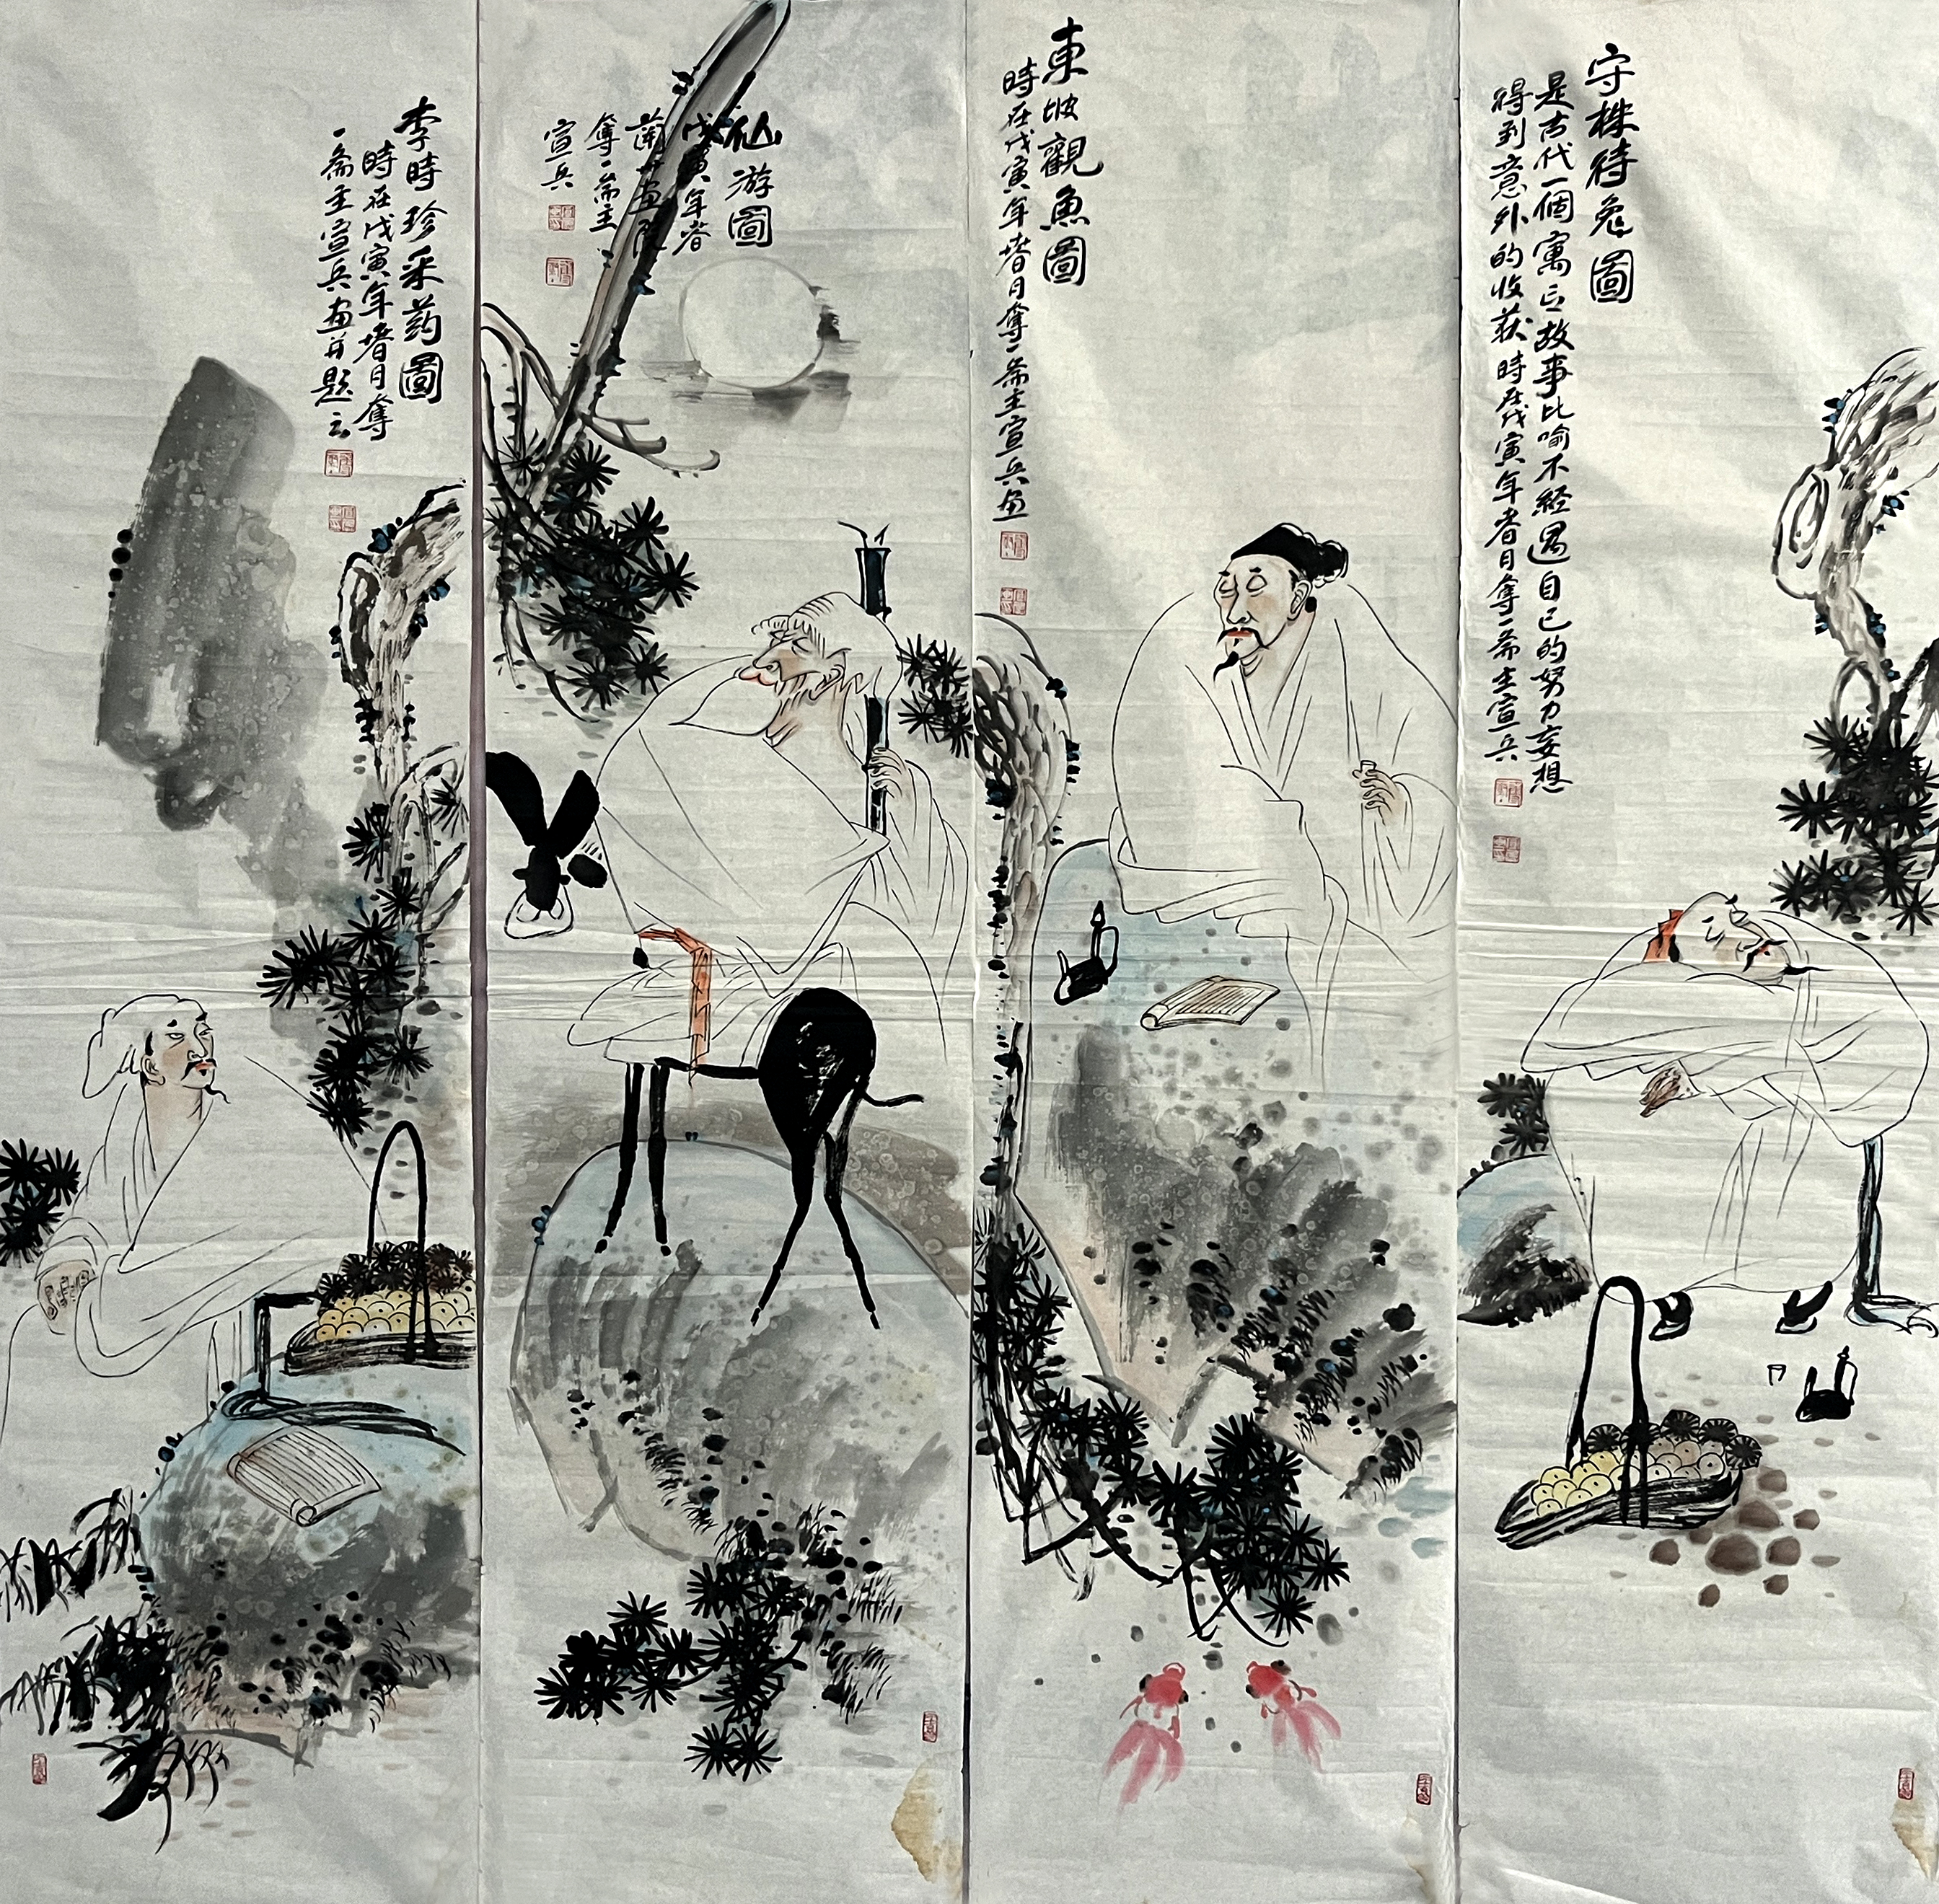 守株待兔圖
是古代一個寓言故事比喻不經過自己的努力妄想
得到意外的收获時在戊寅年春月奪一斋主宣兵
東坡觀魚圖
時在戊寅年春月奪一斋主宣兵画
仙游圖
戊寅年春
画院
奪一斋主
宣兵
李時珍采药圖
時在戊寅年春月奪
一斋主宣兵画并题云